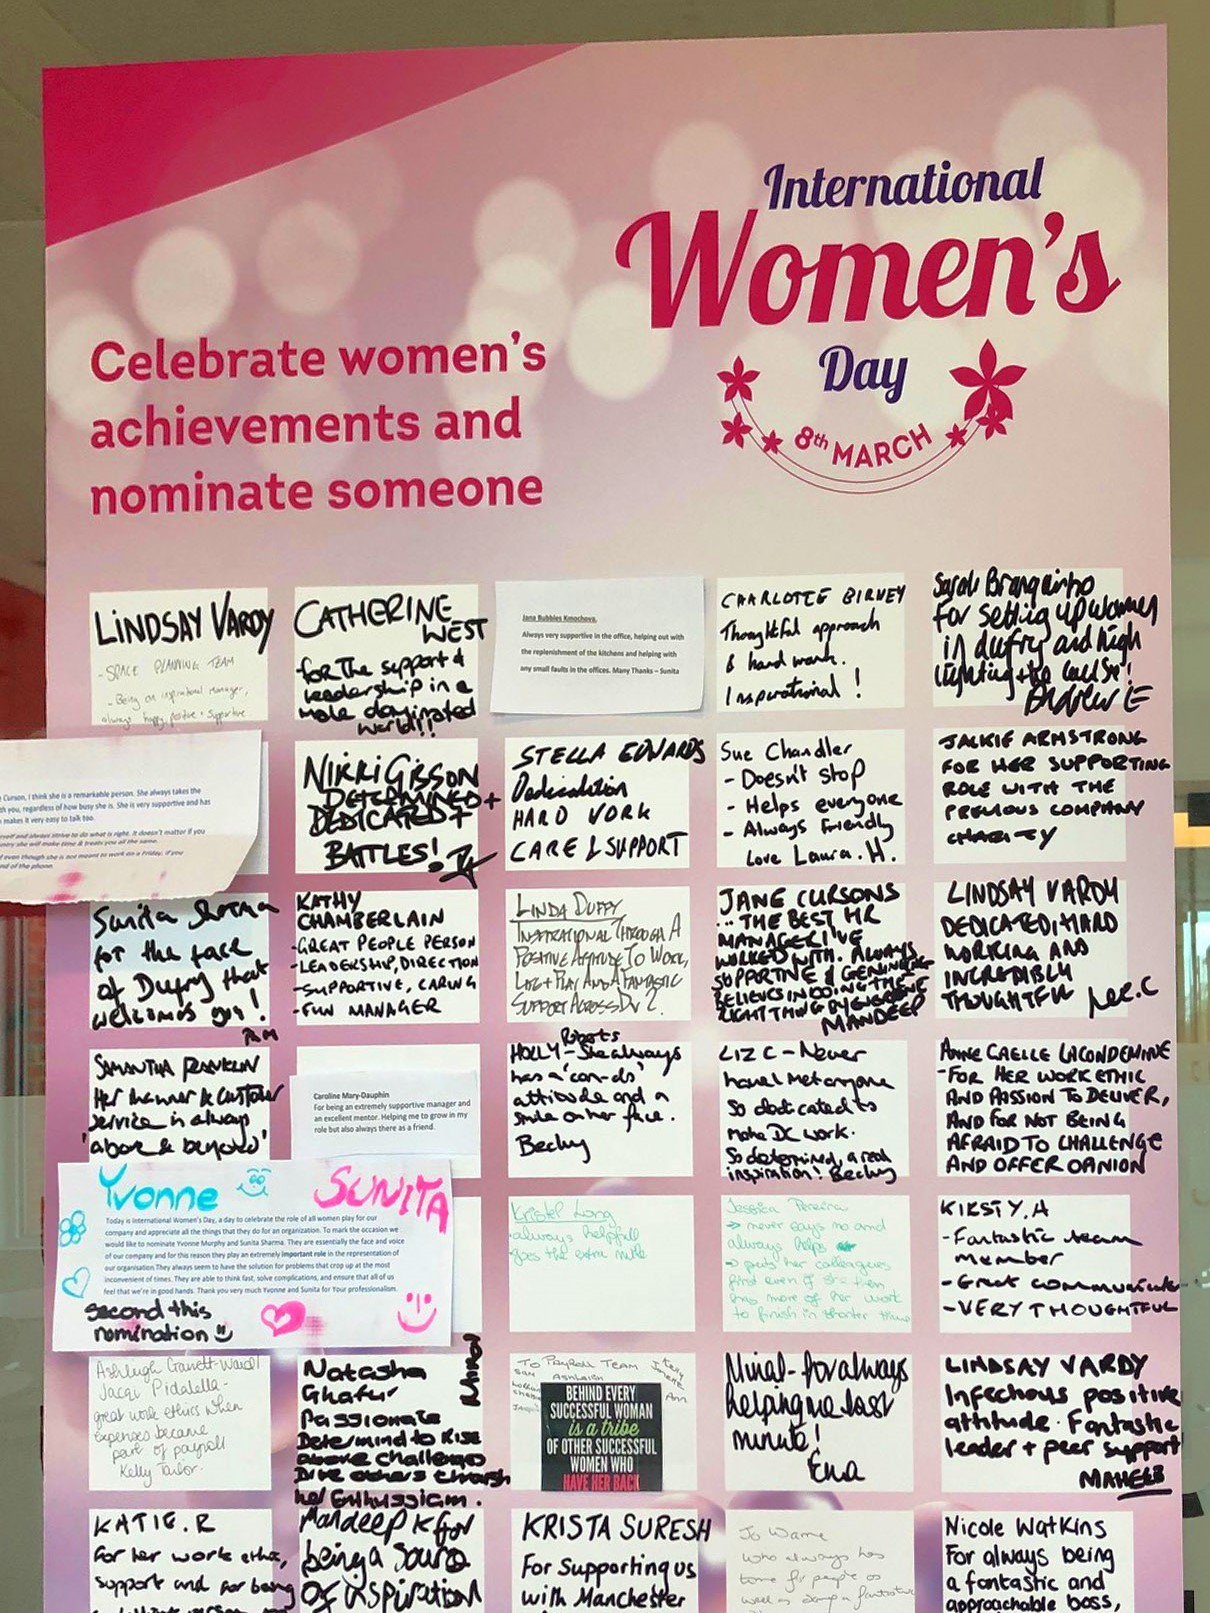 International
Women's
Day
8th MARCH
Celebrate women's
achievements and
nominate someone
LINDSAY VARDY
- SPACE PLANNING TEAM
- Being an inspirational manager,
always happy, positive + supportive
CATHERINE
WEST
for the support &
leadership in a
male dominated
world!!
Jana Bubbles Kmochova.
Always very supportive in the office, helping out with
the replenishment of the kitchens and helping with
any small faults in the offices. Many Thanks – Sunita
CHARLOTTE BIRNEY
Thoughtful approach
& hard work.
Inspirational !
Sarah Branquinho
for setting up women
in dufry and high
lighting the cause!
Andrew E
Curson, I think she is a remarkable person. She always takes the
th you, regardless of how busy she is. She is very supportive and has
makes it very easy to talk too.
and always strive to do what is right. It doesn't matter if you
sorry she will make time & treats you all the same.
f even though she is not meant to work on a Friday, if you
end of the phone.
NIKKI GIBSON
DETERMINED +
DEDICATED +
BATTLES!
STELLA EDWARDS
Dedication
HARD WORK
CARE & SUPPORT
Sue Chandler
- Doesn't stop
- Helps everyone
- Always friendly
Love Laura. H.
JACKIE ARMSTRONG
FOR HER SUPPORTING
ROLE WITH THE
PREVIOUS COMPANY
CHARITY
Sunita Sharma
for the face
of Dufry that
welcomes you!
KATHY
CHAMBERLAIN
- GREAT PEOPLE PERSON
- LEADERSHIP, DIRECTION
- SUPPORTIVE, CARING
- FUN MANAGER
LINDA DUFFY
INSPIRATIONAL THROUGH A
POSITIVE ATTITUDE TO WORK,
LIFE + PLAY AND A FANTASTIC
SUPPORT ACROSS DIV 2.
JANE CURSONS
... THE BEST HR
MANAGER I'VE
WORKED WITH. ALWAYS
SUPPORTIVE & GENUINE
BELIEVES IN DOING THE
RIGHT THING BY EVERYONE
MANDEEP
LINDSAY VARDY
DEDICATED, HARD
WORKING AND
INCREDIBLY
THOUGHTFUL
SAMANTHA FRANKLIN
Her manner & customer
service is always
'above & beyond'
Caroline Mary-Dauphin
For being an extremely supportive manager and
an excellent mentor. Helping me to grow in my
role but also always there as a friend.
Roberts
HOLLY - She always
has a 'can-do'
attitude and a
smile on her face.
Becky
LIZ C - Never
have I met anyone
so dedicated to
make DC work.
So determined, a real
inspiration! Becky
ANNE GAELLE LACONDEMINE
- FOR HER WORK ETHIC
AND PASSION TO DELIVER,
AND FOR NOT BEING
AFRAID TO CHALLENGE
AND OFFER OPINION
Yvonne SUNITA
Today is International Women's Day, a day to celebrate the role of all women play for our
company and appreciate all the things that they do for an organization. To mark the occasion we
would like to nominate Yvonne Murphy and Sunita Sharma. They are essentially the face and voice
of our company and for this reason they play an extremely important role in the representation of
our organisation.They always seem to have the solution for problems that crop up at the most
inconvenient of times. They are able to think fast, solve complications, and ensure that all of us
feel that we're in good hands. Thank you very much Yvonne and Sunita for Your professionalism.
Second this
nomination
Kristel Long
- always helpfull
goes the extra mile
Jessica Pereira
→ never says no and
always helps
→ puts her colleagues
first even if she then
has more of her work
to finish in shorter time
KIRSTY. A
- Fantastic team
member
- Great communicator
- VERY THOUGHTFUL
Ashleigh Garnett-Ward/
Jacqi Pidatalla -
great work ethics when
expenses became
part of payroll
Kelly Tailor.
Natasha
Ghafur
Passionate
Determind to Rise
above challenges
Drive others through
her Enthussiasm.
TO PAYROLL TEAM
Ann
BEHIND EVERY
SUCCESSFUL WOMAN
is a tribe
OF OTHER SUCCESSFUL
WOMEN WHO
HAVE HER BACK
Minal - for always
helping me last
minute!
Ena
LINDSAY VARDY
Infectious positive
attitude. Fantastic
leader + peer support
KATIE. R
For her work ethic,
support and for being
Mandeep K for
being a source
of inspiration
KRISTA SURESH
For supporting us
with Manchester
Jo Warne
who always has
time for people as
well as being a fantastic
Nicole Watkins
For always being
a fantastic and
approachable boss,